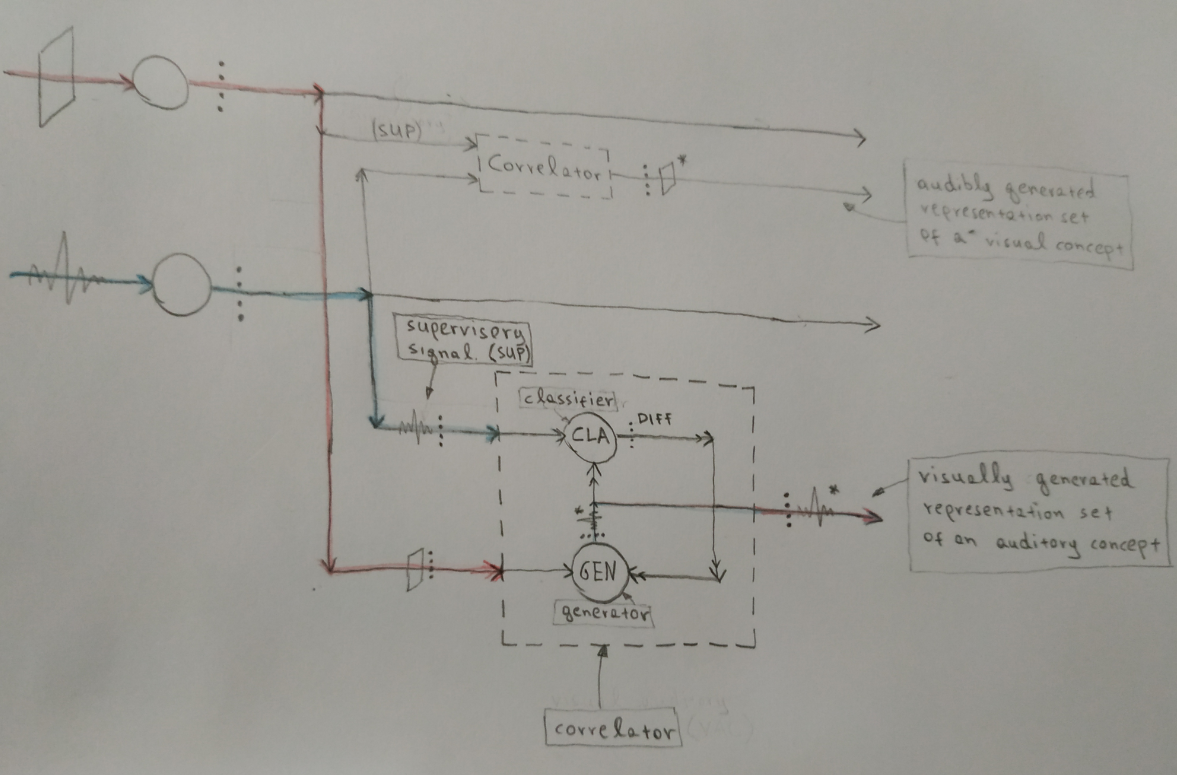 (SUP)
Correlator
*
audibly generated
representation set
of a* visual concept
supervisory
signal. (SUP)
classifier
CLA
DIFF
*
*
visually generated
representation set
of an auditory concept
GEN
generator
correlator